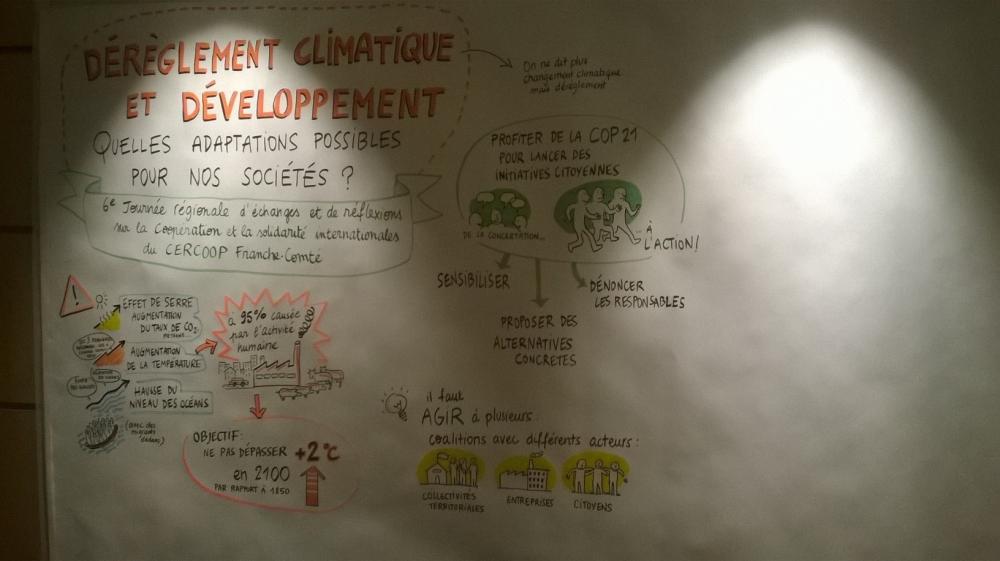 DÉRÈGLEMENT CLIMATIQUE
ET DÉVELOPPEMENT
QUELLES ADAPTATIONS POSSIBLES
POUR NOS SOCIÉTÉS ?
6e Journée régionale d'échanges et de réflexions
sur la Coopération et la solidarité internationales
du CERCOOP Franche-Comté
On ne dit plus
changement climatique
mais dérèglement
PROFITER DE LA COP 21
POUR LANCER DES
INITIATIVES CITOYENNES
DE LA CONCERTATION...
... À
L'ACTION!
SENSIBILISER
PROPOSER DES
ALTERNATIVES
CONCRÈTES
DÉNONCER
LES RESPONSABLES
!
EFFET DE SERRE
AUGMENTATION
DU TAUX DE CO2
AUGMENTATION
DE LA TEMPÉRATURE
HAUSSE DU
NIVEAU DES OCÉANS
(avec des
migrants
dedans)
à 95% causée
par l'activité
humaine
OBJECTIF:
NE PAS DÉPASSER +2°C
en 2100
PAR RAPPORT À 1850
il faut
AGIR à plusieurs:
coalitions avec différents acteurs:
COLLECTIVITÉS
TERRITORIALES
ENTREPRISES
CITOYENS